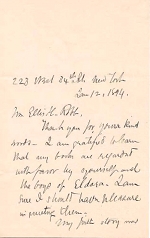 223 West 34th St. New York
Jan 12, 1894.
Ellis H. Roble
Thank you for your kind
words. I am grateful to learn
that my books are regarded
with favor by yourself and
the boys of Eldora. I am
sure I should have pleasure
in meeting them.
My first story was